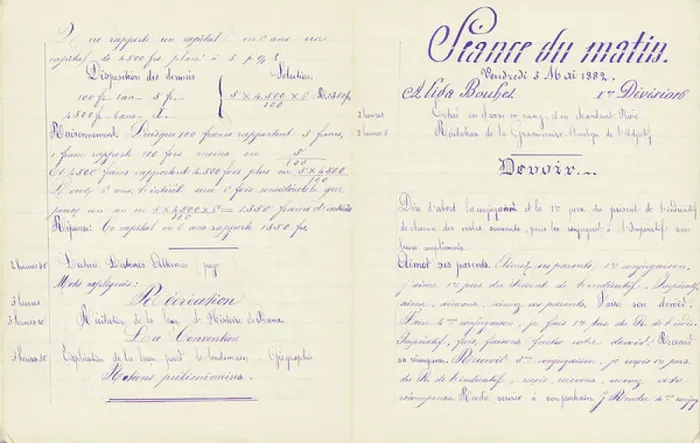 Que rapporte un capital en 6 ans un
capital de 4500 frs placé à 5 p. % ?
Disposition des données Solution.
100 fr. 1 an - 5 fr. 5 X 4.500 X 6 = 1350 fr.
4500 fr. - 6 ans - X. 100
Raisonnement. Puisque 100 francs rapportent 5 francs,
1 franc rapporte 100 fois moins ou 5/100
Et 4500 francs rapportent 4500 fois plus ou 5 X 4500/100
6 ans, l'intérêt sera 6 fois considérable que
pour un an ou 5 X 4500 X 6/100 = 1350 francs d'intérêt
Réponse: Ce capital en 6 ans rapporte 1350 frs.
2 heures 30 Lecture. page
Mots expliqués:
3 heures Récréation
3 heures 10 Récitation de la leçon d'Histoire de France
La Convention
3 heures 30 Explication de la leçon pour le lendemain - Géographie
Notions préliminaires.
Séance du matin.
Vendredi 5 Mai 1882.
Alida Bouhet 1re Division
2 heures Entrée en classe en rang, et en chantant
Récitation de la Grammaire. Analyse de l'Adjectif
Devoir.
Dire d'abord la conjugaison et la 1re pers. du présent de l'indicatif
de chacun des verbes suivants, puis les conjuguer à l'Impératif avec
leurs compléments.
Aimer ses parents. Aimer ses parents, 1re conjugaison,
j'aime 1re pers. du Présent de l'indicatif. Impératif,
aime, aimons, aimez ses parents. Faire son devoir.
Faire 4me conjugaison, je fais 1re pers. du Pr. de l'indic.
Impératif, fais, faisons, faites votre devoir. Recevoir
sa récompense. Recevoir 3me conjugaison, je reçois 1re pers.
du Pr. de l'indicatif, reçois, recevons, recevez votre
récompense. Rendre service à son prochain. Rendre 4me conjug